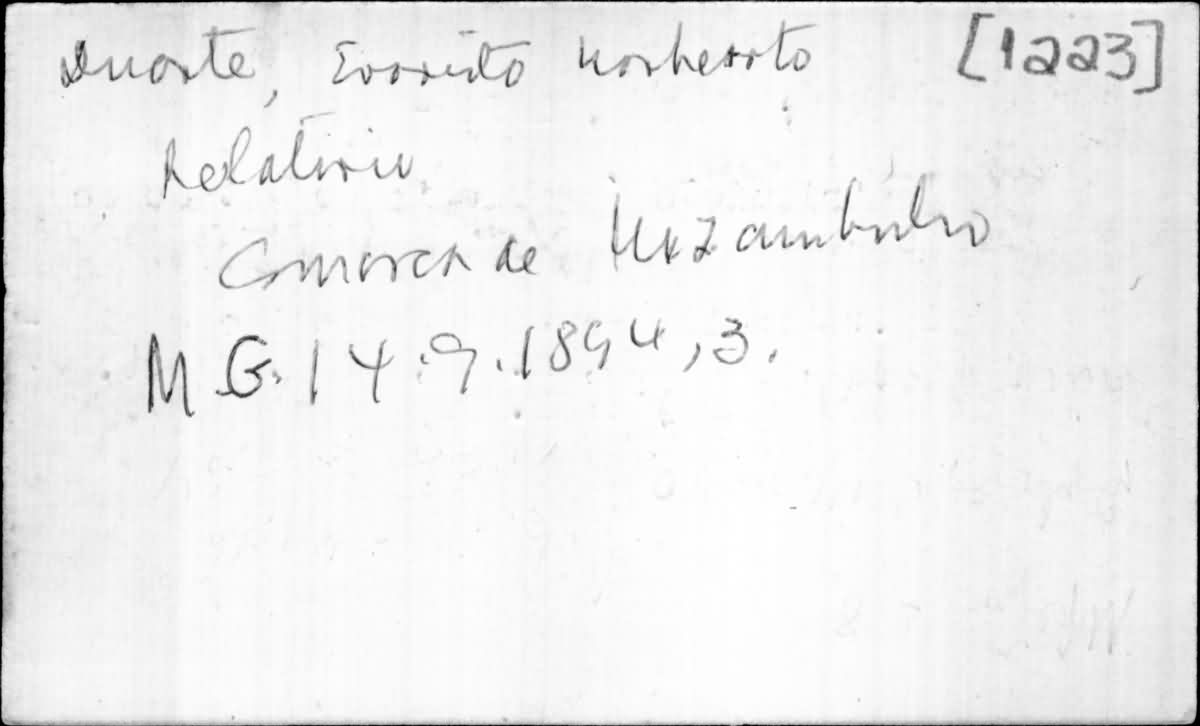 Duarte, Evaristo Norberto [1223]
Relatorio
Comarca de Muzambinho
M.G. 14.9.1894, 3.